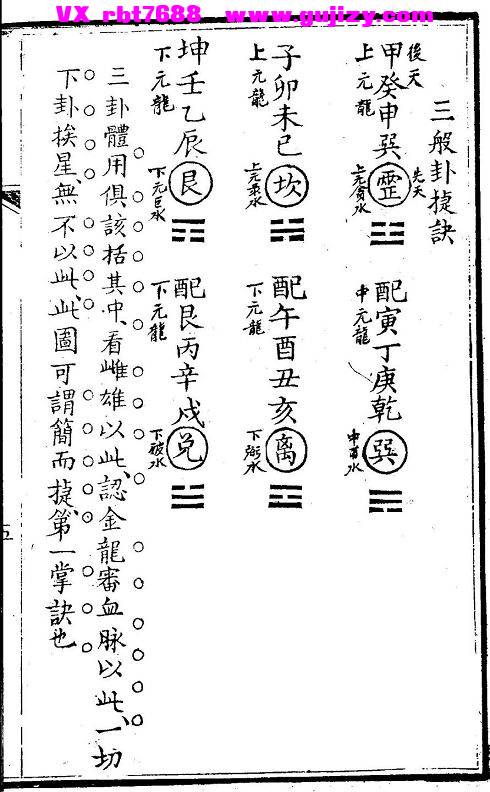 VX rbt7688 www.gujizy.com
三般卦捷訣
後天
甲癸申巽
上元龍
先天
上元貪水
配寅丁庚乾
中元龍
巽
子卯未巳
上元龍
坎
配午酉丑亥
下元龍
離
下弼水
坤壬乙辰
下元龍
艮
下元巨水
配艮丙辛戍
下元龍
兌
下破水
三卦體用俱該括其中、看雌雄以此、認金龍審血脉以此、一切
下卦挨星、無不以此、此圖可謂簡而捷、第一掌訣也
五